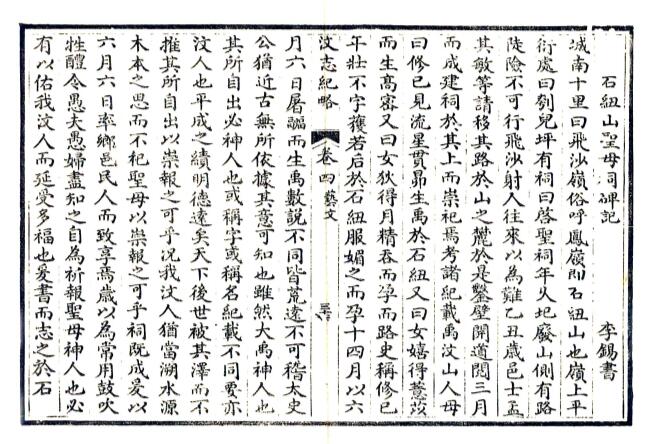 石紐山聖母祠碑記 李錫書
城南十里曰飛沙嶺俗呼鳳嶺即石紐山也嶺上平
衍處曰刳兒坪有祠曰啓聖祠年久圮廢山側有路
陡險不可行飛沙射人往來以為難乙丑歲邑士孟
其敏等請移其路於山之麓於是鑿壁開道閱三月
而成建祠於其上而崇祀焉考諸紀載禹汶山人母
曰修已見流星貫昴生禹於石紐又曰女嬉得薏苡
而生高密又曰女狄得月精吞而孕而路史稱修已
年壯不字獲若后於石紐服媚之而孕十四月以六
汶志紀略 卷四 藝文
月六日屠䯙而生禹數說不同皆荒遠不可稽太史
公猶近古無所依據其意可知也雖然大禹神人也
其所自出必神人也或稱字或稱名紀載不同要亦
汶人也平成之績明德遠矣天下後世被其澤而不
推其所自出以崇報之可乎況我汶人猶當溯水源
木本之思而不祀聖母以崇報之可乎祠既成爰以
六月六日率鄉邑民人而致享焉歲以為常用鼓吹
牲醴令愚夫愚婦盡知之自為祈報聖母神人也必
有以佑我汶人而延受多福也爰書而志之於石